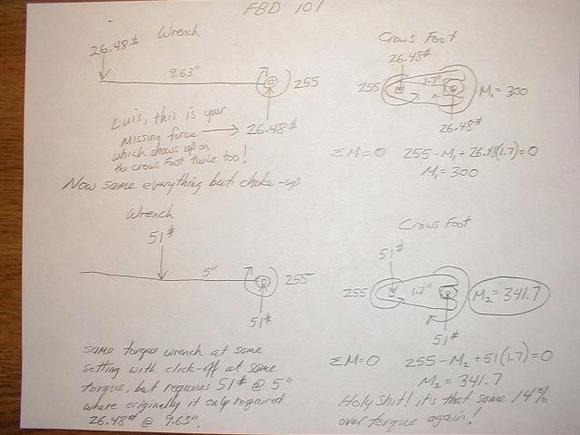 FBD 101
Wrench
26.48#
9.63"
255
26.48#
Luis, this is your
missing force
which shows up on
the crows foot twice too!
Crows Foot
26.48#
255
1.7"
M₁=300
26.48#
ΣM=0 255-M₁+26.48(1.7)=0
M₁=300
Now same everything but choke-up
Wrench
51#
5"
255
51#
Crows Foot
51#
255
1.7"
M₂=341.7
51#
ΣM=0 255-M₂+51(1.7)=0
M₂=341.7
same torque wrench at same
setting with click-off at same
torque, but requires 51# @ 5"
where originally it only required
26.48# @ 9.63".
Holy shit! it's that same 14%
over torque again!